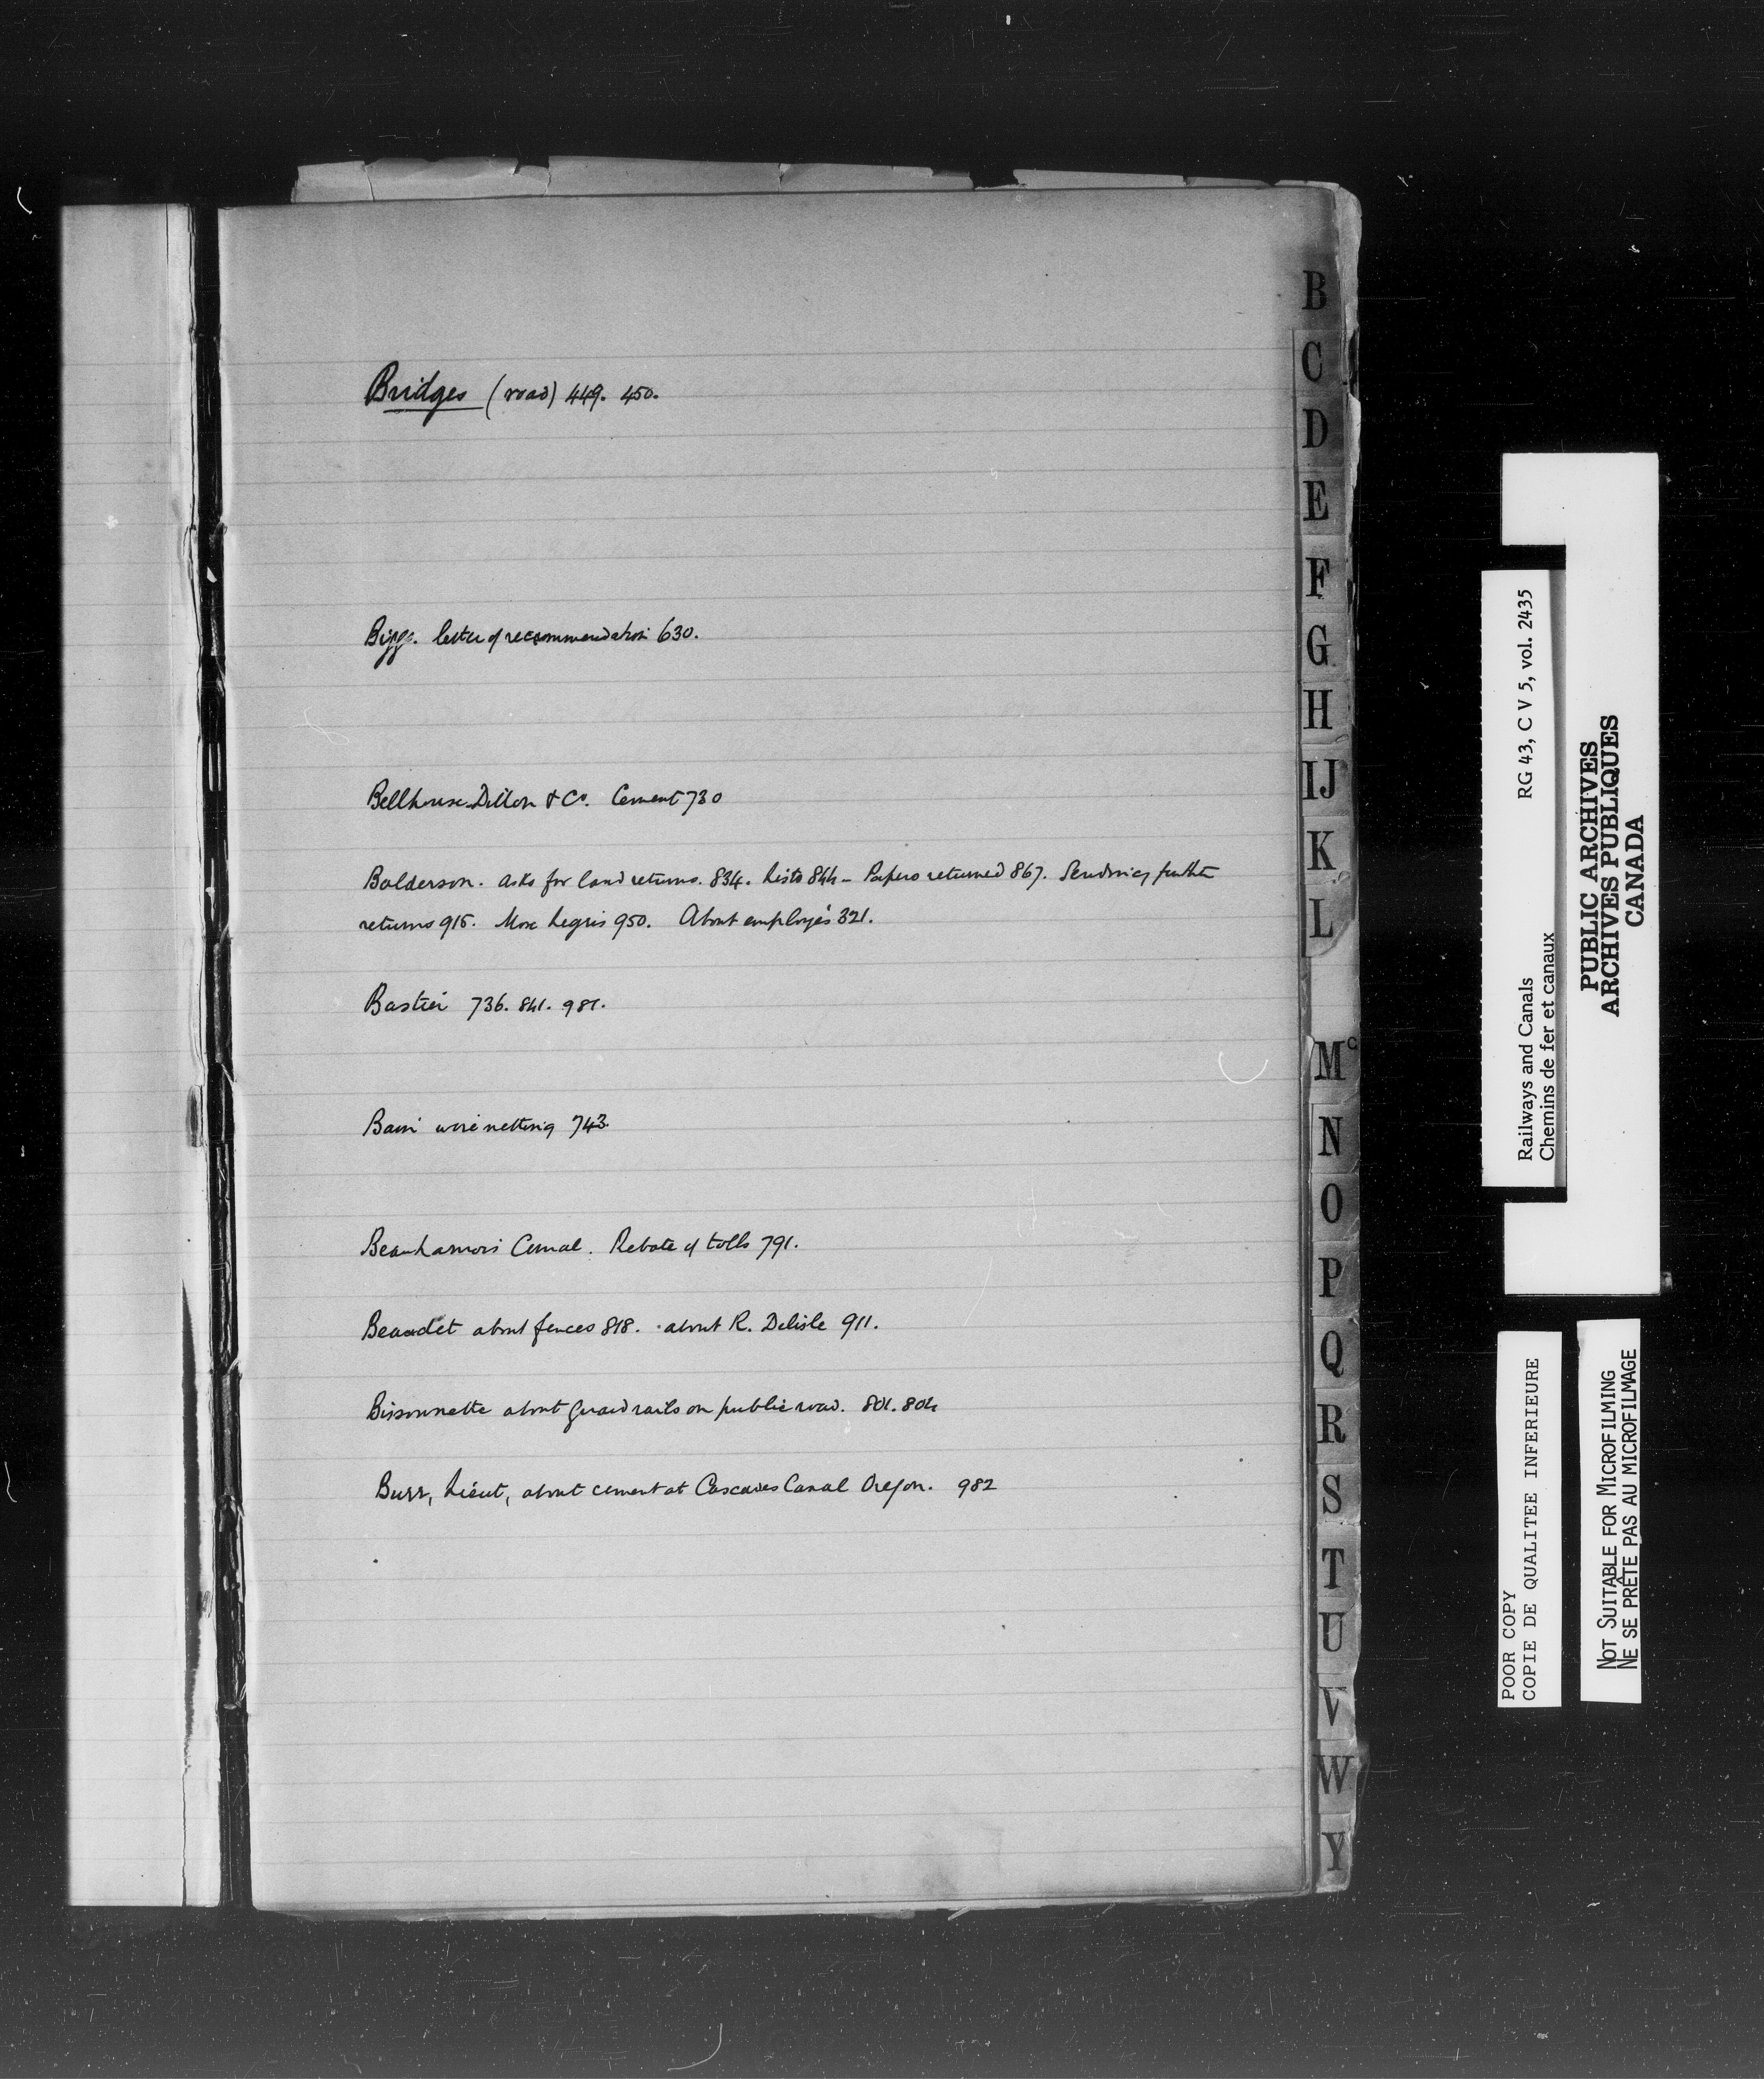 Bridges (road) 449. 450.
Bigg. letter of recommendation 630.
Bellhouse Dillon & Co. Cement 730
Balderson. asks for land returns. 834. Lists 844 - Papers returned 867. Sending further
returns 915. More Legris 950. About employés 321.
Bastien 736. 841. 981.
Bain wire netting 743.
Beauharnois Canal. Rebate of tolls 791.
Beaudet about fences 818. about R. Delisle 911.
Bissonnette about guard rails on public road. 801. 804
Burr, Lieut, about cement at Cascades Canal Oregon. 982
B
C
D
E
F
G
H
IJ
K
L
Mc
N
O
P
Q
R
S
T
U
V
W
Y
Railways and Canals RG 43, C V 5, vol. 2435
Chemins de fer et canaux
PUBLIC ARCHIVES
ARCHIVES PUBLIQUES
CANADA
POOR COPY
COPIE DE QUALITEE INFERIEURE
NOT SUITABLE FOR MICROFILMING
NE SE PRÊTE PAS AU MICROFILMAGE